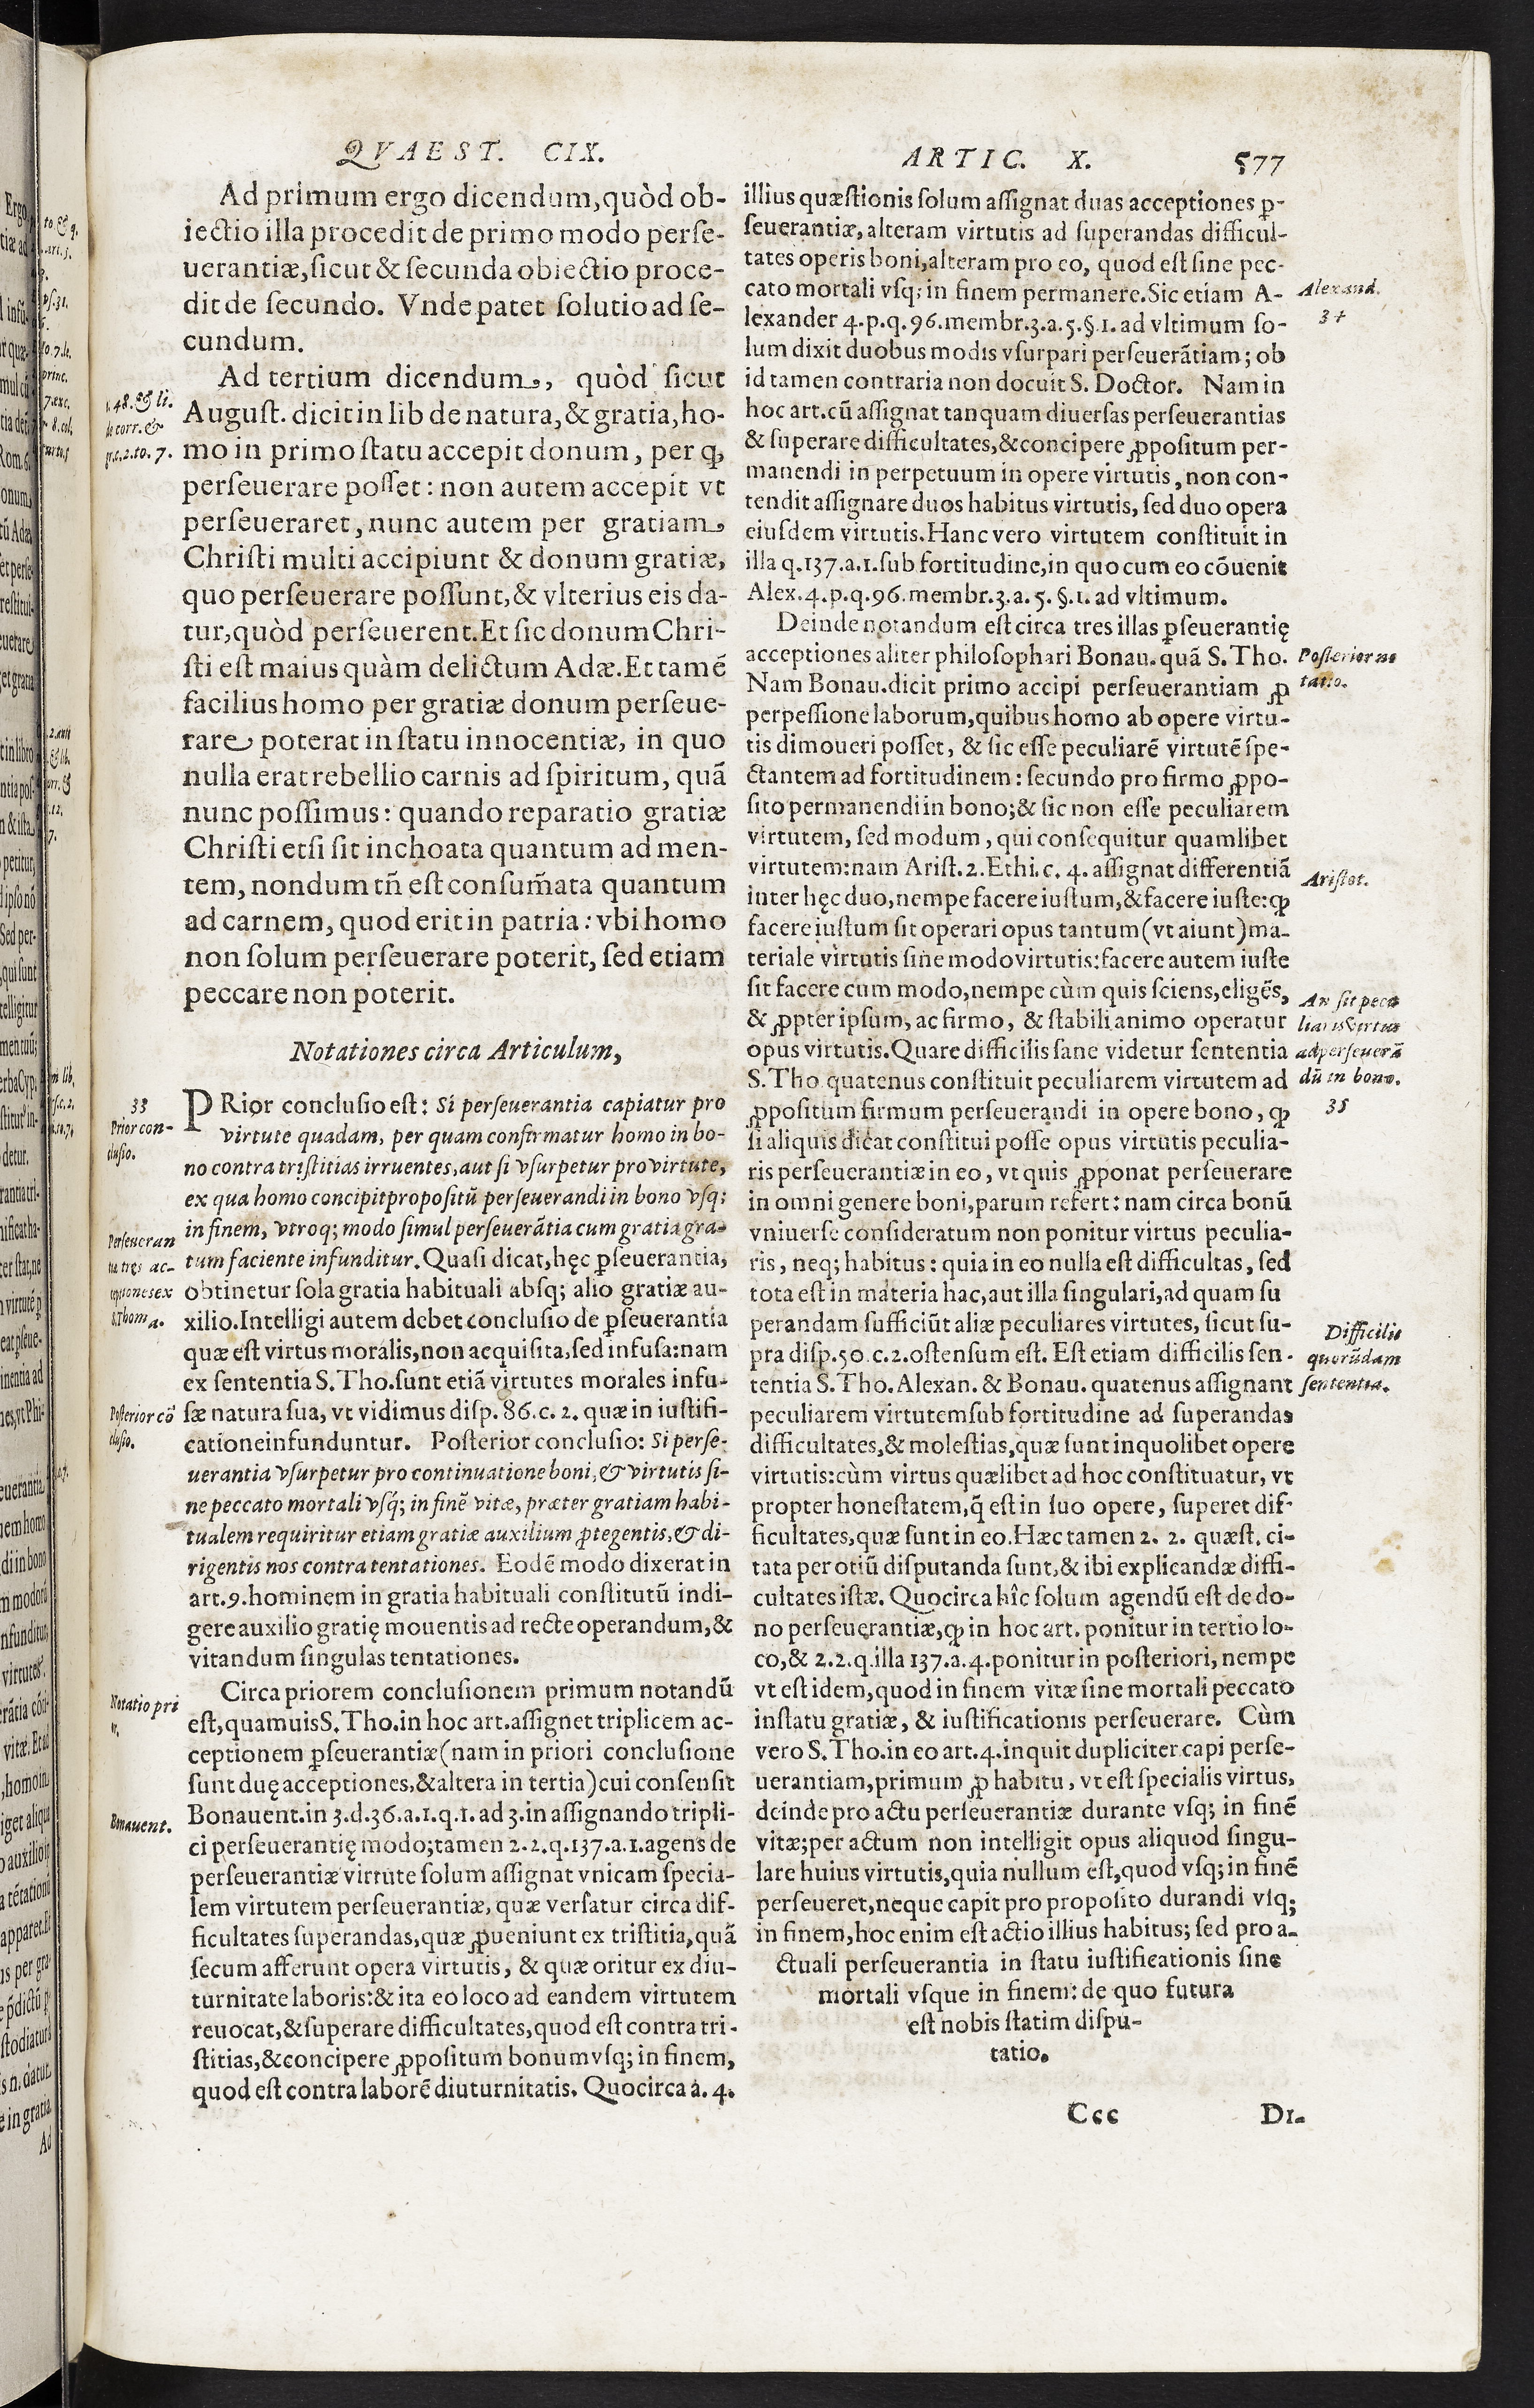 QVAEST. CIX.
Ad primum ergo dicendum, quòd ob-
iectio illa procedit de primo modo perse-
uerantiæ, sicut & secunda obiectio proce-
dit de secundo. Vnde patet solutio ad se-
cundum.
Ad tertium dicendum, quòd sicut
August. dicit in lib de natura, & gratia, ho-
mo in primo statu accepit donum, per qꝫ
perseuerare posset: non autem accepit vt
perseueraret, nunc autem per gratiam
Christi multi accipiunt & donum gratiæ,
quo perseuerare possunt, & vlterius eis da-
tur, quòd perseuerent. Et sic donum Chri-
sti est maius quàm delictum Adæ. Et tamẽ
facilius homo per gratiæ donum perseue-
rare poterat in statu innocentiæ, in quo
nulla erat rebellio carnis ad spiritum, quã
nunc possimus: quando reparatio gratiæ
Christi etsi sit inchoata quantum ad men-
tem, nondum tñ est consum̃ata quantum
ad carnem, quod erit in patria: vbi homo
non solum perseuerare poterit, sed etiam
peccare non poterit.
Notationes circa Articulum,
PRior conclusio est: Si perseuerantia capiatur pro
virtute quadam, per quam confirmatur homo in bo-
no contra tristitias irruentes, aut si vsurpetur pro virtute,
ex qua homo concipit propositũ perseuerandi in bono vsq;
in finem, vtroq; modo simul perseuerãtia cum gratia gra-
tum faciente infunditur. Quasi dicat, hęc ꝑseuerantia,
obtinetur sola gratia habituali absq; alio gratiæ au-
xilio. Intelligi autem debet conclusio de ꝑseuerantia
quæ est virtus moralis, non acquisita, sed infusa: nam
ex sententia S. Tho. sunt etiã virtutes morales infu-
sæ natura sua, vt vidimus disp. 86. c. 2. quæ in iustifi-
catione infunduntur. Posterior conclusio: Si perse-
uerantia vsurpetur pro continuatione boni, & virtutis si-
ne peccato mortali vsq́; in finẽ vitæ, præter gratiam habi-
tualem requiritur etiam gratiæ auxilium ꝓtegentis, & di-
rigentis nos contra tentationes. Eodẽ modo dixerat in
art. 9. hominem in gratia habituali constitutũ indi-
gere auxilio gratię mouentis ad recte operandum, &
vitandum singulas tentationes.
Circa priorem conclusionem primum notandũ
est, quamuis S. Tho. in hoc art. assignet triplicem ac-
ceptionem ꝑseuerantiæ (nam in priori conclusione
sunt duę acceptiones, & altera in tertia) cui consensit
Bonauent. in 3. d. 36. a. 1. q. 1. ad 3. in assignando tripli-
ci perseuerantię modo; tamen 2. 2. q. 137. a. 1. agens de
perseuerantiæ virtute solum assignat vnicam specia-
lem virtutem perseuerantiæ, quæ versatur circa dif-
ficultates superandas, quæ ꝓueniunt ex tristitia, quã
secum afferunt opera virtutis, & quæ oritur ex diu-
turnitate laboris: & ita eo loco ad eandem virtutem
reuocat, & superare difficultates, quod est contra tri-
stitias, & concipere ꝓpositum bonum vsq; in finem,
quod est contra laborẽ diuturnitatis. Quocirca a. 4.
33
Prior con-
clusio.
Posterior cõ
Notatio pri
Bonauent.
ARTIC. X. 577
illius quæstionis solum assignat duas acceptiones ꝑ-
seuerantiæ, alteram virtutis ad superandas difficul-
tates operis boni, alteram pro eo, quod est sine pec-
cato mortali vsq; in finem permanere. Sic etiam A-
lexander 4. p. q. 96. membr. 3. a. 5. §. 1. ad vltimum so-
lum dixit duobus modis vsurpari perseuerãtiam; ob
id tamen contraria non docuit S. Doctor. Nam in
hoc art. cũ assignat tanquam diuersas perseuerantias
& superare difficultates, & concipere ꝓpositum per-
manendi in perpetuum in opere virtutis, non con-
tendit assignare duos habitus virtutis, sed duo opera
eiusdem virtutis. Hanc vero virtutem constituit in
illa q. 137. a. 1. sub fortitudine, in quo cum eo cõuenit
Alex. 4. p. q. 96. membr. 3. a. 5. §. 1. ad vltimum.
Deinde notandum est circa tres illas ꝑseuerantię
acceptiones aliter philosophari Bonau. quã S. Tho.
Nam Bonau. dicit primo accipi perseuerantiam ꝓ
perpessione laborum, quibus homo ab opere virtu-
tis dimoueri posset, & sic esse peculiarẽ virtutẽ spe-
ctantem ad fortitudinem: secundo pro firmo ꝓpo-
sito permanendi in bono; & sic non esse peculiarem
virtutem, sed modum, qui consequitur quamlibet
virtutem: nam Arist. 2. Ethi. c. 4. assignat differentiã
inter hęc duo, nempe facere iustum, & facere iuste: ꝙ
facere iustum sit operari opus tantum (vt aiunt) ma-
teriale virtutis sine modo virtutis: facere autem iuste
sit facere cum modo, nempe cùm quis sciens, eligẽs,
& ꝓpter ipsum, ac firmo, & stabili animo operatur
opus virtutis. Quare difficilis sane videtur sententia
S. Tho quatenus constituit peculiarem virtutem ad
ꝓpositum firmum perseuerandi in opere bono, ꝙ
si aliquis dicat constitui posse opus virtutis peculia-
ris perseuerantiæ in eo, vt quis ꝓponat perseuerare
in omni genere boni, parum refert: nam circa bonũ
vniuerse consideratum non ponitur virtus peculia-
ris, neq; habitus: quia in eo nulla est difficultas, sed
tota est in materia hac, aut illa singulari, ad quam su
perandam sufficiũt aliæ peculiares virtutes, sicut su-
pra disp. 50. c. 2. ostensum est. Est etiam difficilis sen-
tentia S. Tho. Alexan. & Bonau. quatenus assignant
peculiarem virtutem sub fortitudine ad superandas
difficultates, & molestias, quæ sunt in quolibet opere
virtutis: cùm virtus quælibet ad hoc constituatur, vt
propter honestatem, q̃ est in suo opere, superet dif-
ficultates, quæ sunt in eo. Hæc tamen 2. 2. quæst. ci-
tata per otiũ disputanda sunt, & ibi explicandæ diffi-
cultates istæ. Quocirca hîc solum agendũ est de do-
no perseuerantiæ, ꝙ in hoc art. ponitur in tertio lo-
co, & 2. 2. q. illa 137. a. 4. ponitur in posteriori, nempe
vt est idem, quod in finem vitæ sine mortali peccato
in statu gratiæ, & iustificationis perseuerare. Cùm
vero S. Tho. in eo art. 4. inquit dupliciter capi perse-
uerantiam, primum ꝓ habitu, vt est specialis virtus,
deinde pro actu perseuerantiæ durante vsq; in finẽ
vitæ; per actum non intelligit opus aliquod singu-
lare huius virtutis, quia nullum est, quod vsq; in finẽ
perseueret, neque capit pro proposito durandi vsq;
in finem, hoc enim est actio illius habitus; sed pro a-
ctuali perseuerantia in statu iustificationis sine
mortali vsque in finem: de quo futura
est nobis statim dispu-
tatio.
Alexand.
34
Posterior no
tatio.
Aristot.
An sit pecu
liaris virtus
ad perseuerã
dũ in bono.
35
Difficilis
quorũdam
sententia.
Ccc DI-